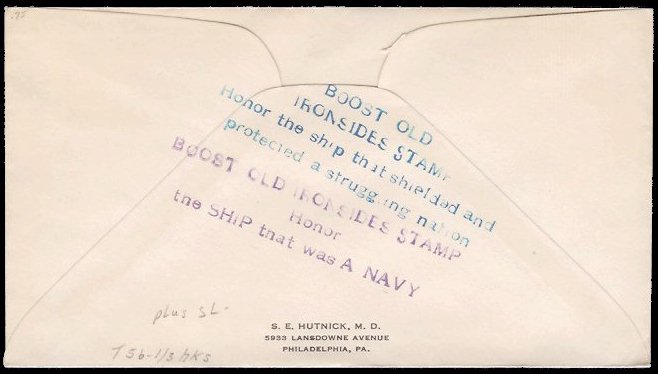 .75
BOOST OLD
IRONSIDES STAMP
Honor the ship that shielded and
protected a struggling nation
BOOST OLD IRONSIDES STAMP
Honor
the SHIP that was A NAVY
plus SL-
T 5b-1/3 hks
S. E. HUTNICK, M. D.
5933 LANSDOWNE AVENUE
PHILADELPHIA, PA.